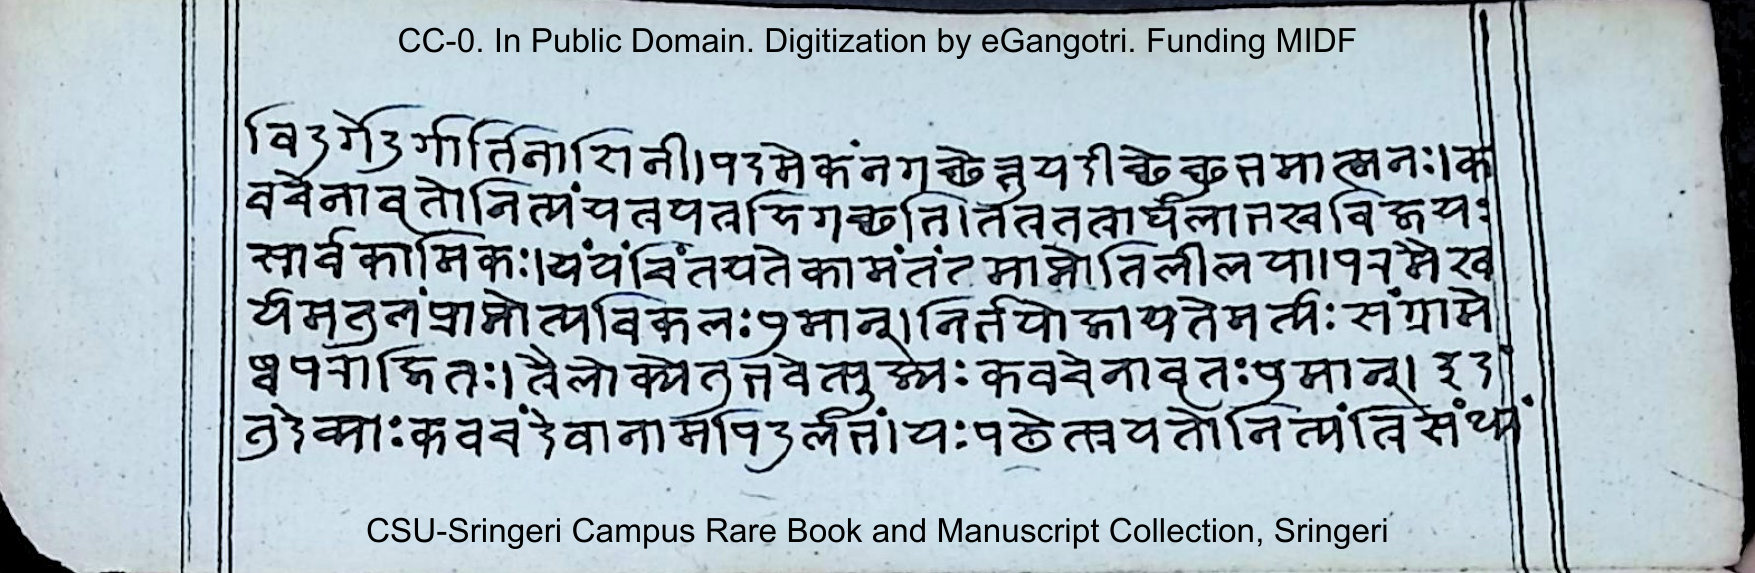 CC-0. In Public Domain. Digitization by eGangotri. Funding MIDF
विदुर्गेदुर्गार्तिनाशिनी।पदमेकंनगच्छेत्तुयदीच्छेच्छुभमात्मनः।क
वचेनावृतोनित्यंयत्रयत्रहिगच्छति।तत्रतत्रार्थलाभस्वविजयः
सार्वकामिकः।यंयंचिंतयतेकामंतंतमाप्नोतिलीलया।परमैस्व
र्यमतुलंप्राप्नोत्यविकलःपुमान्।निर्भयोजायतेमर्त्यःसंग्रामे
ष्वपराजितः।त्रैलोक्येतुभवेत्पुज्यःकवचेनावृतःपुमान्।इदं
तुदेव्याःकवचंदेवानामपिदुर्लभं।यःपठेत्प्रयतोनित्यंत्रिसंध्यं
CSU-Sringeri Campus Rare Book and Manuscript Collection, Sringeri